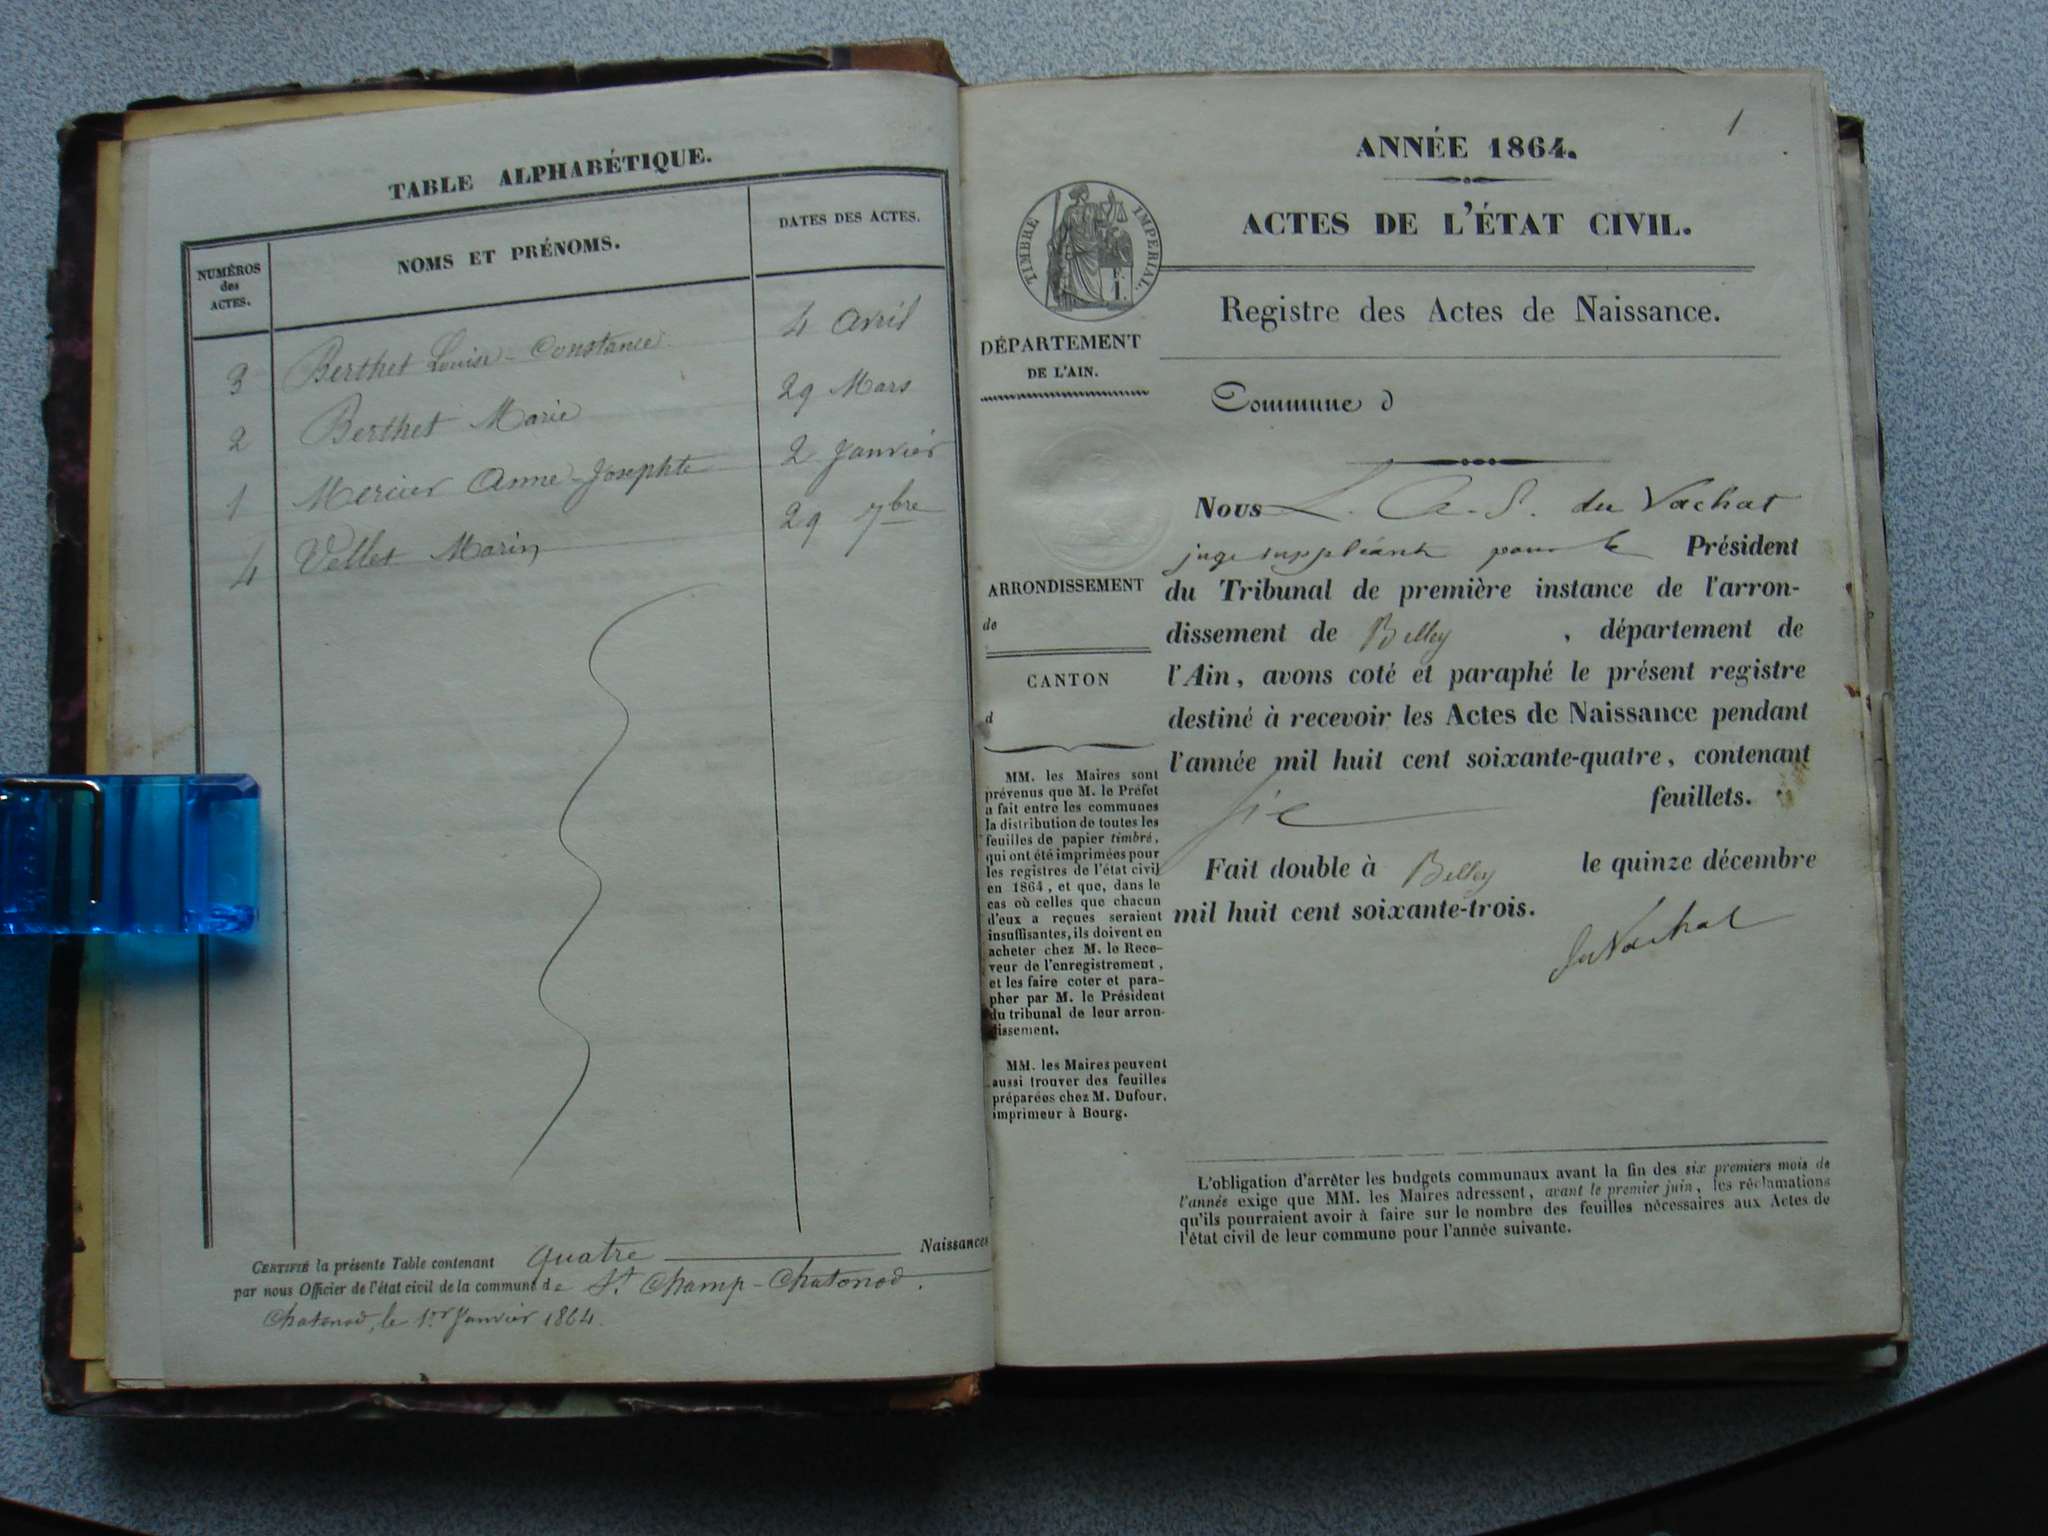 TABLE ALPHABÉTIQUE.
NUMÉROS
des
ACTES.
NOMS ET PRÉNOMS.
DATES DES ACTES.
3 Berthet Louise-Constance 4 avril
2 Berthet Marie 29 Mars
1 Mercier Anne-Josephte 2 Janvier
4 Vellet Marin 29 7bre
CERTIFIÉ la présente Table contenant quatre Naissances
par nous Officier de l'état civil de la commune de St. Champ-Chatonod.
Chatonod, le 1er Janvier 1864.
1
ANNÉE 1864.
ACTES DE L'ÉTAT CIVIL.
TIMBRE IMPÉRIAL.
Registre des Actes de Naissance.
DÉPARTEMENT
DE L'AIN.
Commune d
ARRONDISSEMENT
de
CANTON
d
MM. les Maires sont
prévenus que M. le Préfet
a fait entre les communes
la distribution de toutes les
feuilles de papier timbré,
qui ont été imprimées pour
les registres de l'état civil
en 1864, et que, dans le
cas où celles que chacun
d'eux a reçues seraient
insuffisantes, ils doivent en
acheter chez M. le Rece-
veur de l'enregistrement,
et les faire coter et para-
pher par M. le Président
du tribunal de leur arron-
dissement.
MM. les Maires peuvent
aussi trouver des feuilles
préparées chez M. Dufour,
imprimeur à Bourg.
Nous L. A. S. du Vachat
juge suppléant pour le Président
du Tribunal de première instance de l'arron-
dissement de Belley, département de
l'Ain, avons coté et paraphé le présent registre
destiné à recevoir les Actes de Naissance pendant
l'année mil huit cent soixante-quatre, contenant
feuillets.
Fait double à Belley le quinze décembre
mil huit cent soixante-trois.
du Vachat
L'obligation d'arrêter les budgets communaux avant la fin des six premiers mois de
l'année exige que MM. les Maires adressent, avant le premier juin, les réclamations
qu'ils pourraient avoir à faire sur le nombre des feuilles nécessaires aux Actes de
l'état civil de leur commune pour l'année suivante.